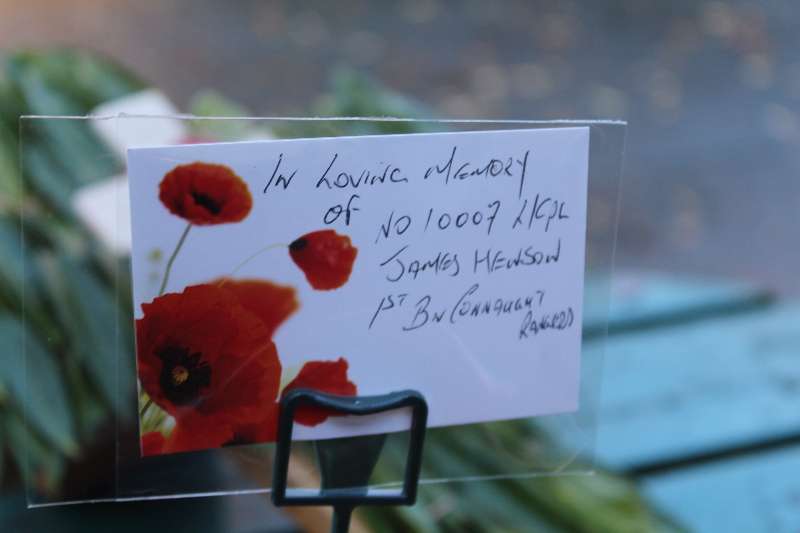 In Loving Memory
of No 10007 L/Cpl
James Hewson
1st Bn Connaught
Rangers